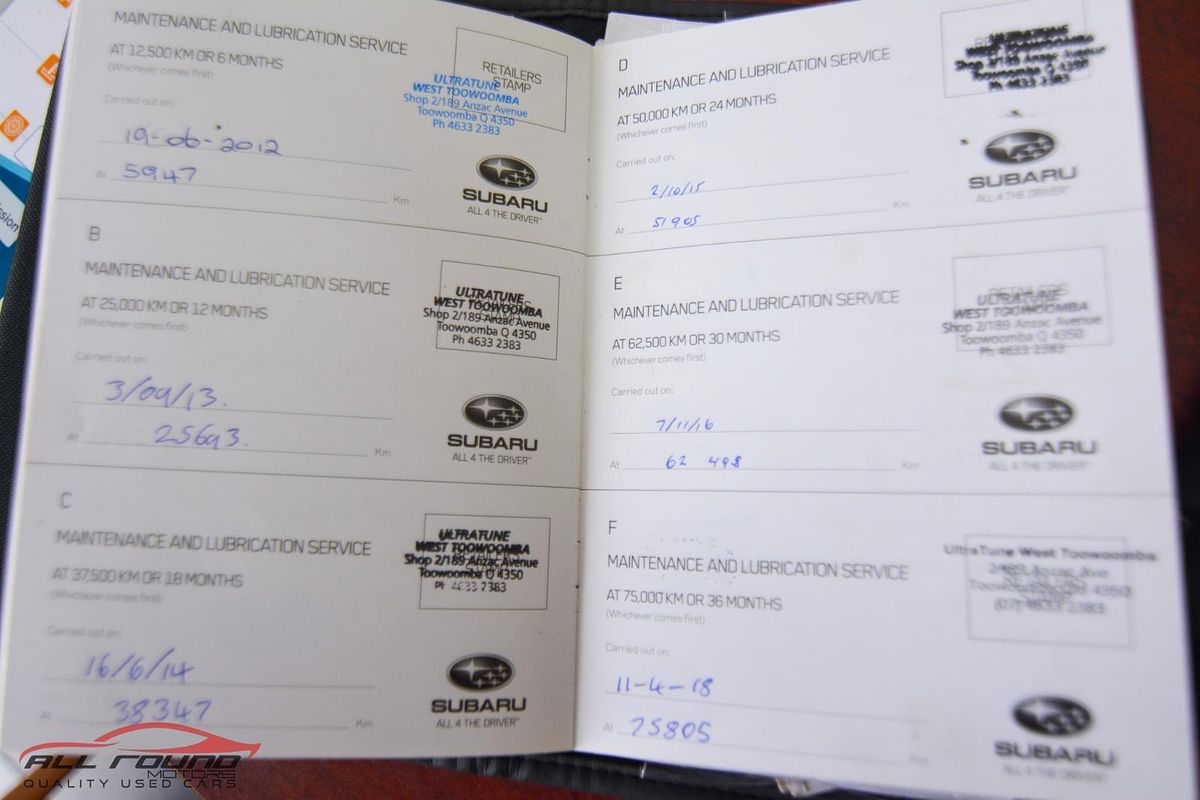 MAINTENANCE AND LUBRICATION SERVICE
AT 12,500 KM OR 6 MONTHS
(Whichever comes first)
RETAILERS
STAMP
ULTRATUNE
WEST TOOWOOMBA
Shop 2/189 Anzac Avenue
Toowoomba Q 4350
Ph 4633 2383
Carried out on:
19-06-2012
At 5947 Km
SUBARU
ALL 4 THE DRIVER™
B
MAINTENANCE AND LUBRICATION SERVICE
AT 25,000 KM OR 12 MONTHS
(Whichever comes first)
ULTRATUNE
WEST TOOWOOMBA
Shop 2/189 Anzac Avenue
Toowoomba Q 4350
Ph 4633 2383
Carried out on:
3/09/13.
At 25693. Km
SUBARU
ALL 4 THE DRIVER™
C
MAINTENANCE AND LUBRICATION SERVICE
AT 37,500 KM OR 18 MONTHS
(Whichever comes first)
ULTRATUNE
WEST TOOWOOMBA
Shop 2/189 Anzac Avenue
Toowoomba Q 4350
Ph 4633 2383
Carried out on:
16/6/14
At 38347 Km
SUBARU
ALL 4 THE DRIVER™
D
MAINTENANCE AND LUBRICATION SERVICE
AT 50,000 KM OR 24 MONTHS
(Whichever comes first)
ULTRATUNE
WEST TOOWOOMBA
Shop 2/189 Anzac Avenue
Toowoomba Q 4350
Ph 4633 2383
Carried out on:
2/10/15
At 51905 Km
SUBARU
ALL 4 THE DRIVER™
E
MAINTENANCE AND LUBRICATION SERVICE
AT 62,500 KM OR 30 MONTHS
(Whichever comes first)
RETAILERS
ULTRATUNE
WEST TOOWOOMBA
Shop 2/189 Anzac Avenue
Toowoomba Q 4350
Ph 4633 2383
Carried out on:
7/11/16
At 62 498 Km
SUBARU
ALL 4 THE DRIVER™
F
MAINTENANCE AND LUBRICATION SERVICE
AT 75,000 KM OR 36 MONTHS
(Whichever comes first)
UltraTune West Toowoomba
2/189 Anzac Ave
Toowoomba Qld 4350
(07) 4633 2383
Carried out on:
11-4-18
At 75805 Km
SUBARU
ALL 4 THE DRIVER™
ALL ROUND
MOTORS
QUALITY USED CARS